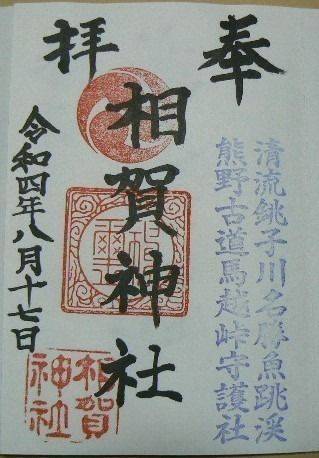 奉拝
清流銚子川名勝魚跳渓
熊野古道馬越峠守護社
相賀神社
令和四年八月十七日
相賀
神社